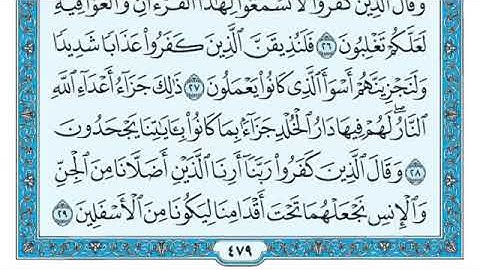 وَقَالَ ٱلَّذِينَ كَفَرُوا۟ لَا تَسْمَعُوا۟ لِهَٰذَا ٱلْقُرْءَانِ وَٱلْغَوْا۟ فِيهِ
لَعَلَّكُمْ تَغْلِبُونَ ٢٦ فَلَنُذِيقَنَّ ٱلَّذِينَ كَفَرُوا۟ عَذَابًا شَدِيدًا
وَلَنَجْزِيَنَّهُمْ أَسْوَأَ ٱلَّذِى كَانُوا۟ يَعْمَلُونَ ٢٧ ذَٰلِكَ جَزَآءُ أَعْدَآءِ ٱللَّهِ
ٱلنَّارُ ۖ لَهُمْ فِيهَا دَارُ ٱلْخُلْدِ جَزَآءًۢ بِمَا كَانُوا۟ بِـَٔايَٰتِنَا يَجْحَدُونَ
٢٨ وَقَالَ ٱلَّذِينَ كَفَرُوا۟ رَبَّنَآ أَرِنَا ٱلَّذَيْنِ أَضَلَّانَا مِنَ ٱلْجِنِّ
وَٱلْإِنسِ نَجْعَلْهُمَا تَحْتَ أَقْدَامِنَا لِيَكُونَا مِنَ ٱلْأَسْفَلِينَ ٢٩
٤٧٩